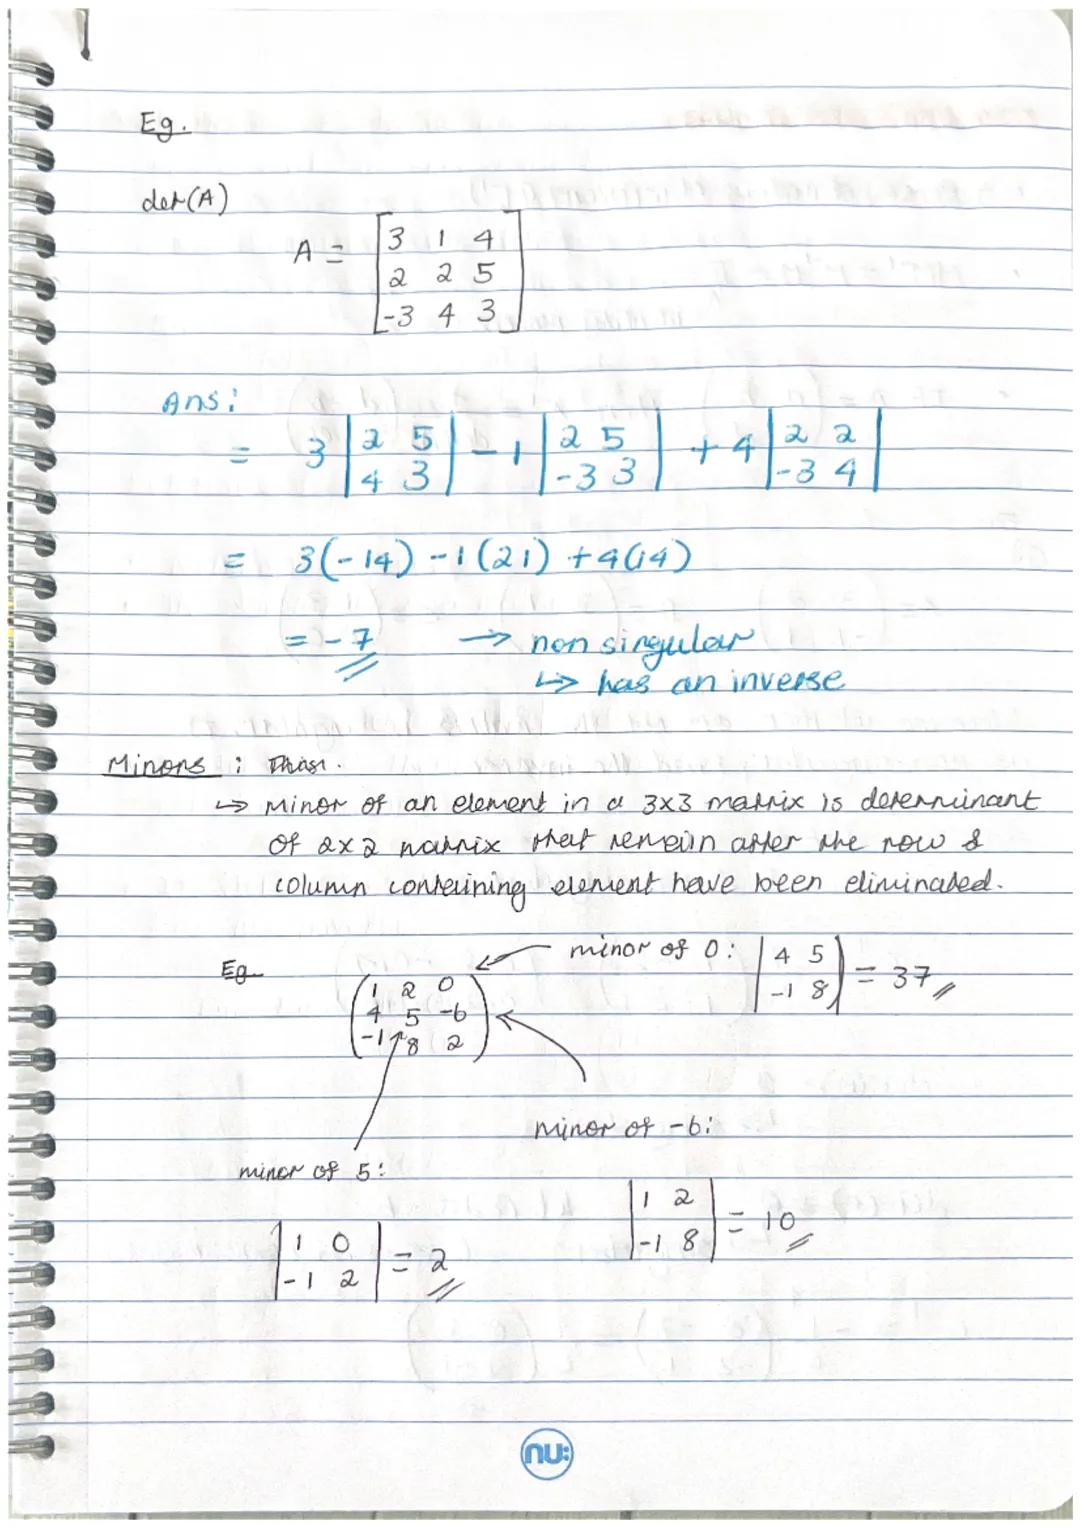 Eg.
det(A)
A = [3 1 4
2 2 5
-3 4 3]
Ans:
= 3 |2 5 4 3| - 1 |2 5 -3 3| + 4 |2 2 -3 4|
= 3(-14) - 1(21) + 4(14)
= -7 → non singular
↳ has an inverse
Minors :
↳ minor of an element in a 3x3 matrix is determinant
of 2x2 matrix that remain after the row &
column containing element have been eliminated.
minor of 0: |4 5 -1 8| = 37
Eg
(1 2 0
4 5 -6
-1 8 2)
minor of -6:
minor of 5:
|1 2 -1 8| = 10
|1 0 -1 2| = 2
nu: